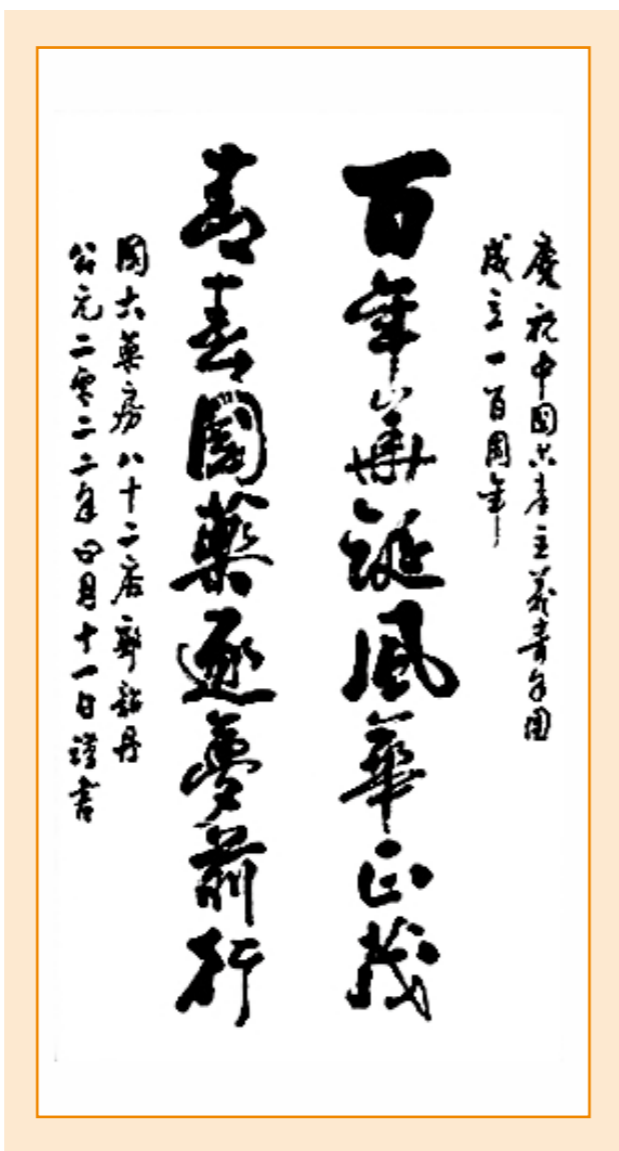 慶祝中國共產主義青年團
成立一百周年
百年華誕風華正茂
青春國藥逐夢前行
國大藥房八十二店鄭韶丹
公元二零二二年四月十一日謹書